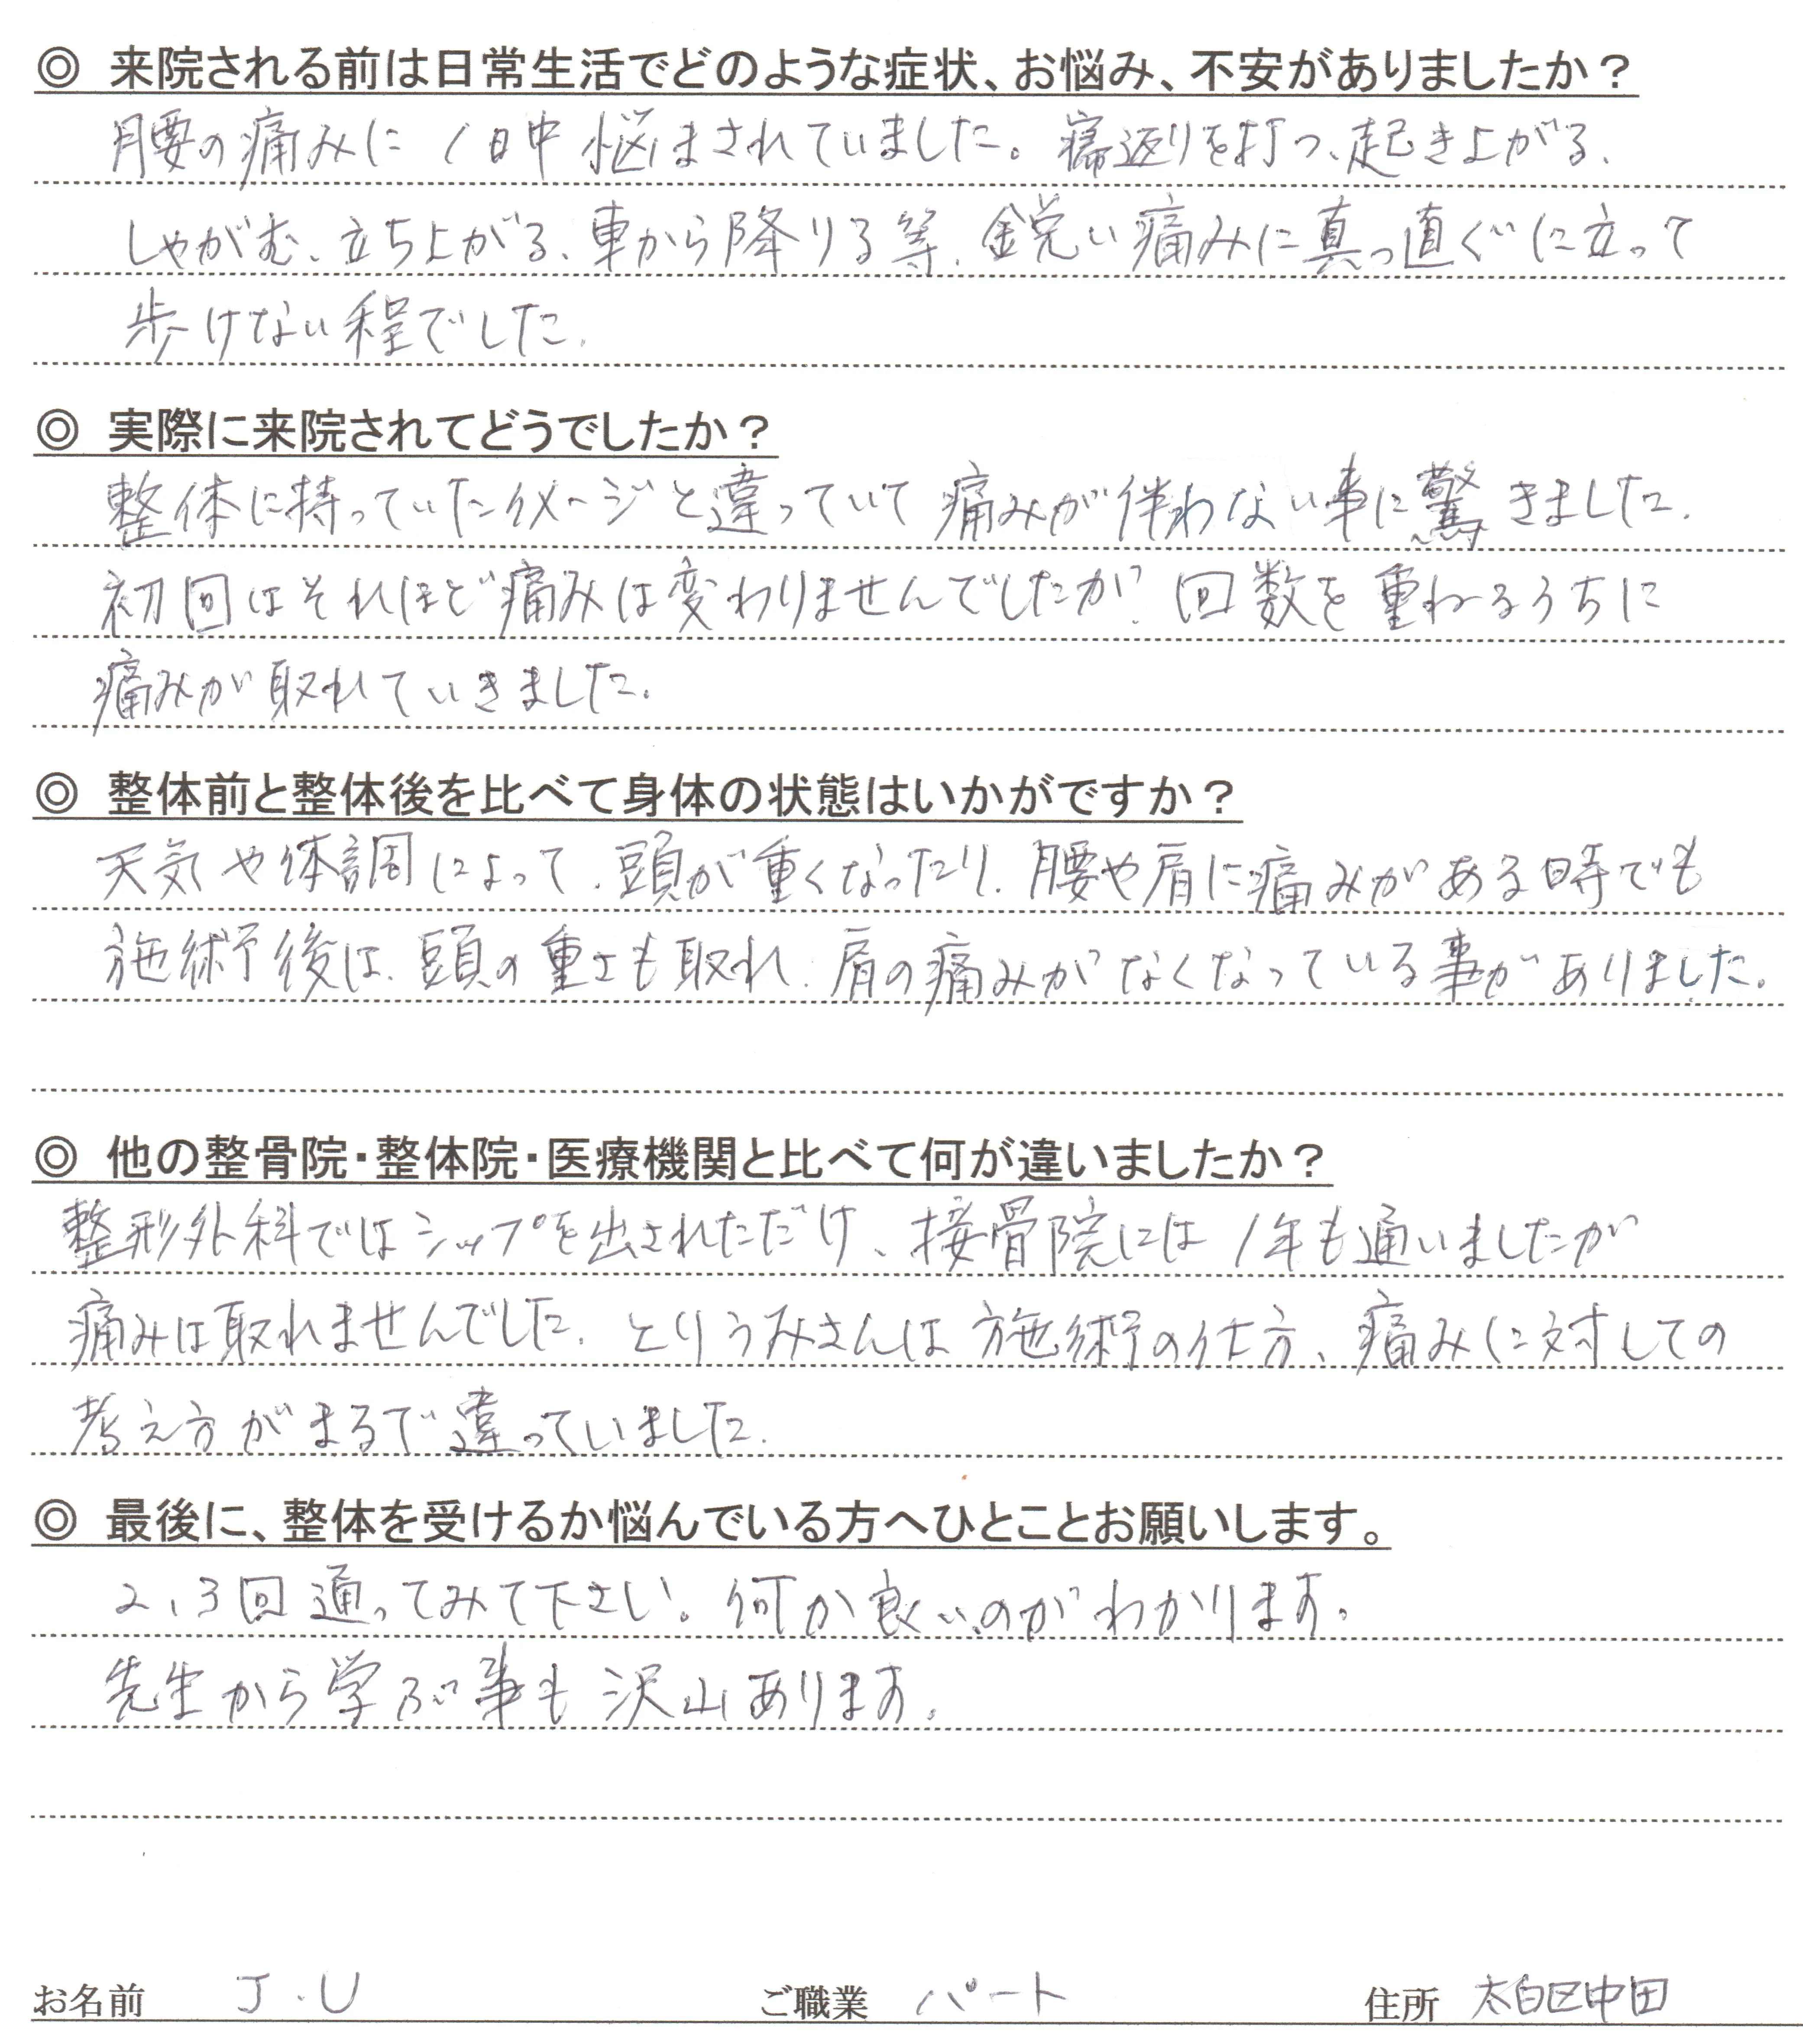 ◎ 来院される前は日常生活でどのような症状、お悩み、不安がありましたか？
腰の痛みに1日中悩まされていました。寝返りを打つ、起き上がる、
しゃがむ、立ち上がる、車から降りる等、鋭い痛みに真っ直ぐに立って
歩けない程でした。
◎ 実際に来院されてどうでしたか？
整体に持っていたイメージと違っていて痛みが伴わない事に驚きました。
初回はそれほど痛みは変わりませんでしたが、回数を重ねるうちに
痛みが取れていきました。
◎ 整体前と整体後を比べて身体の状態はいかがですか？
天気や体調によって、頭が重くなったり、腰や肩に痛みがある時でも
施術後は、頭の重さも取れ、肩の痛みがなくなっている事がありました。
◎ 他の整骨院・整体院・医療機関と比べて何が違いましたか？
整形外科ではシップを出されただけ、接骨院には1年も通いましたが
痛みは取れませんでした。とりうみさんは施術の仕方、痛みに対しての
考え方がまるで違っていました。
◎ 最後に、整体を受けるか悩んでいる方へひとことお願いします。
2、3回通ってみて下さい。何か良いのがわかります。
先生から学ぶ事も沢山あります。
お名前 J.U ご職業 パート 住所 太白区中田